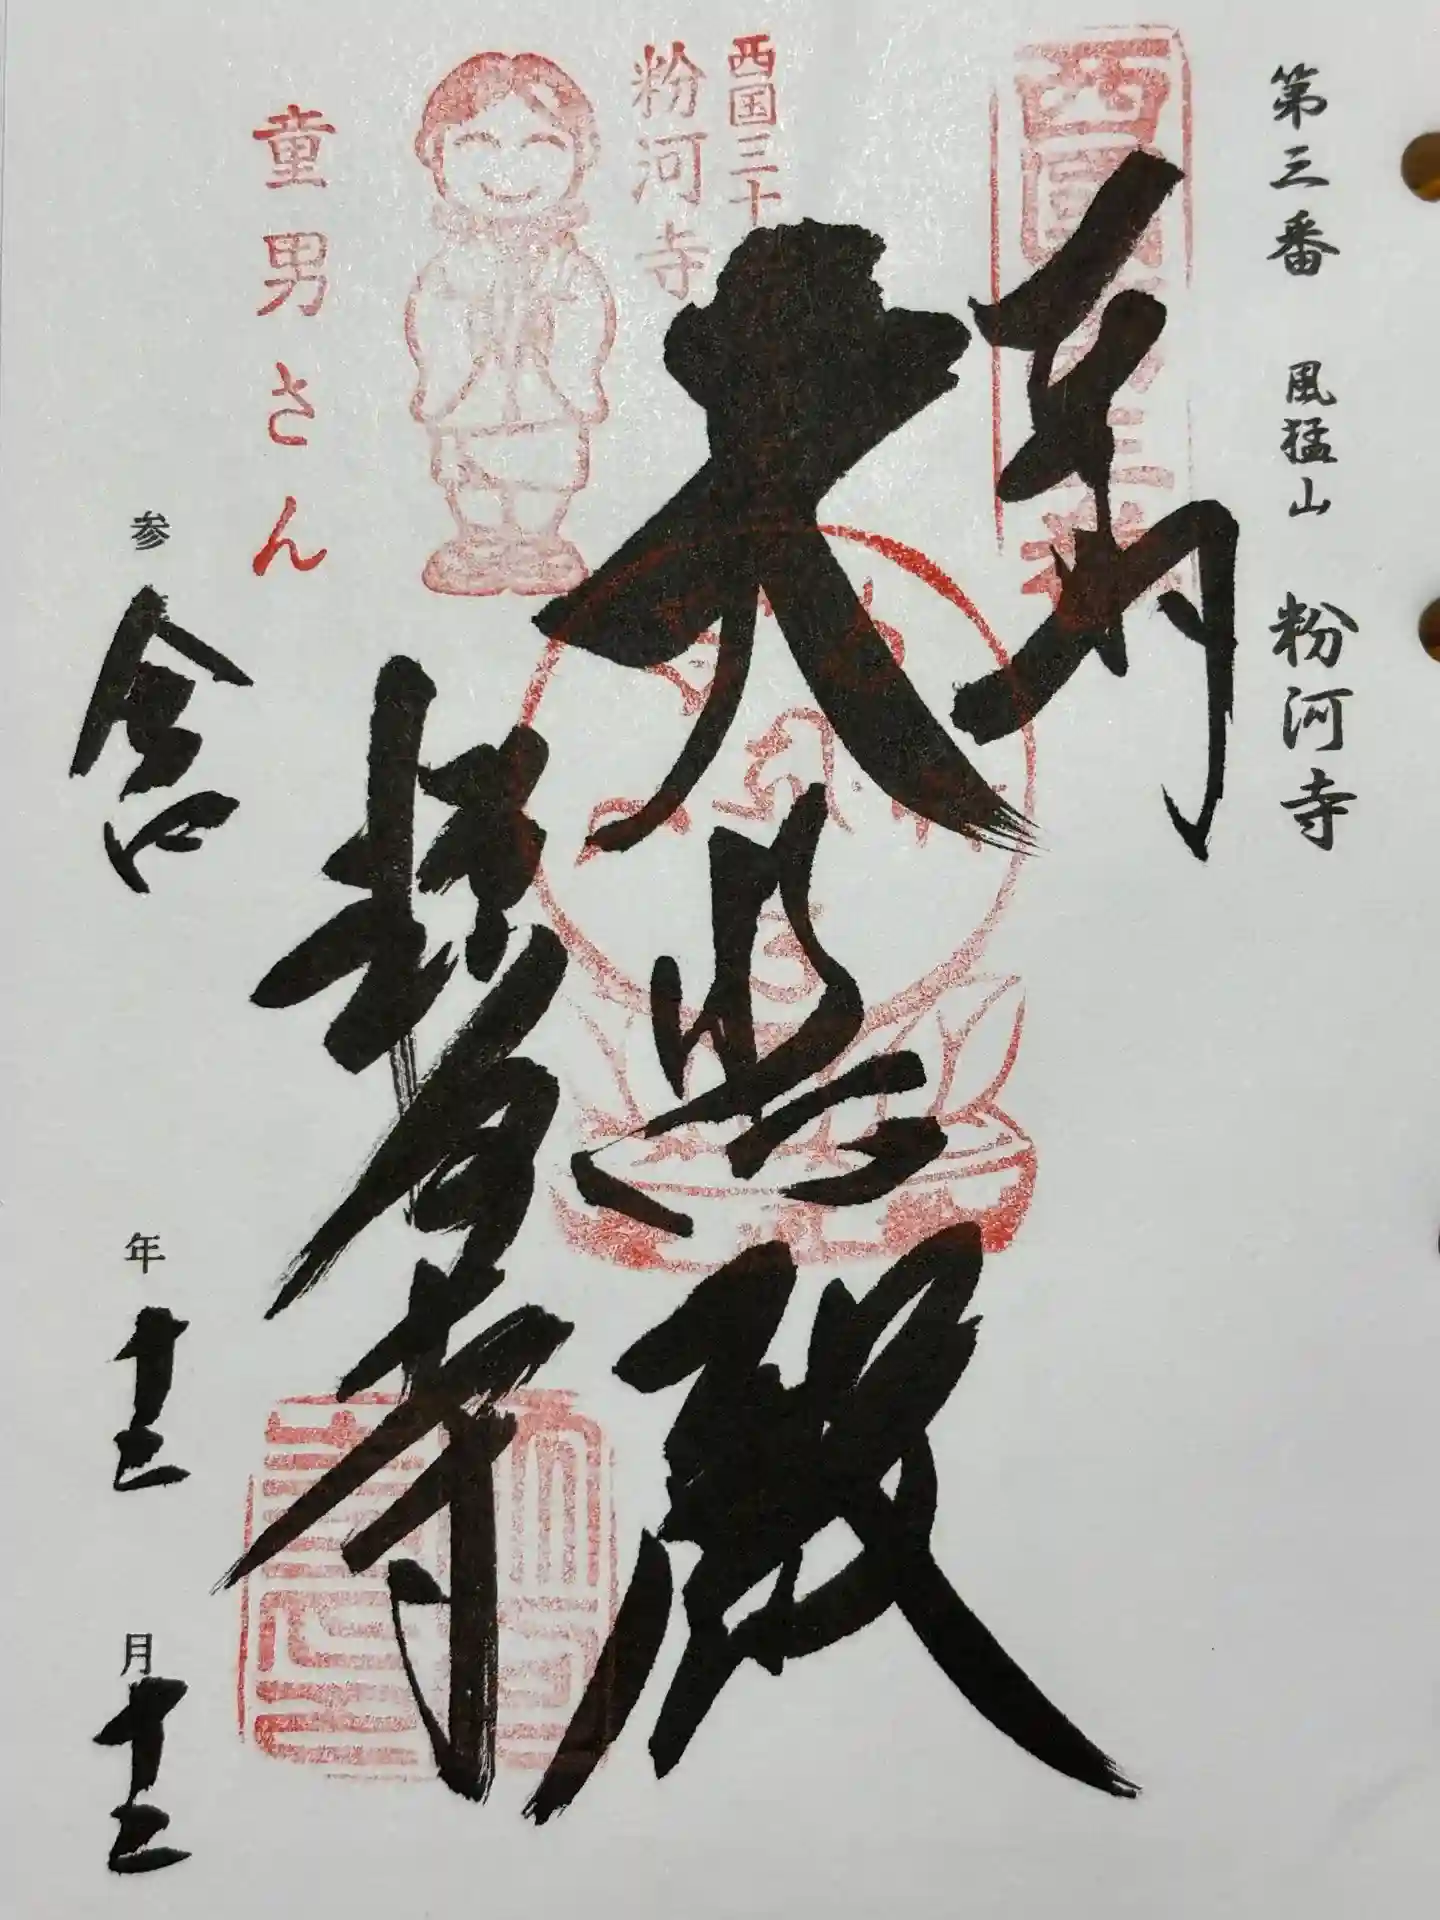 第三番 風猛山 粉河寺
西國第三番
奉拝
西国三十
粉河寺
大悲殿
粉河寺
童男さん
参 令四年十二月十二